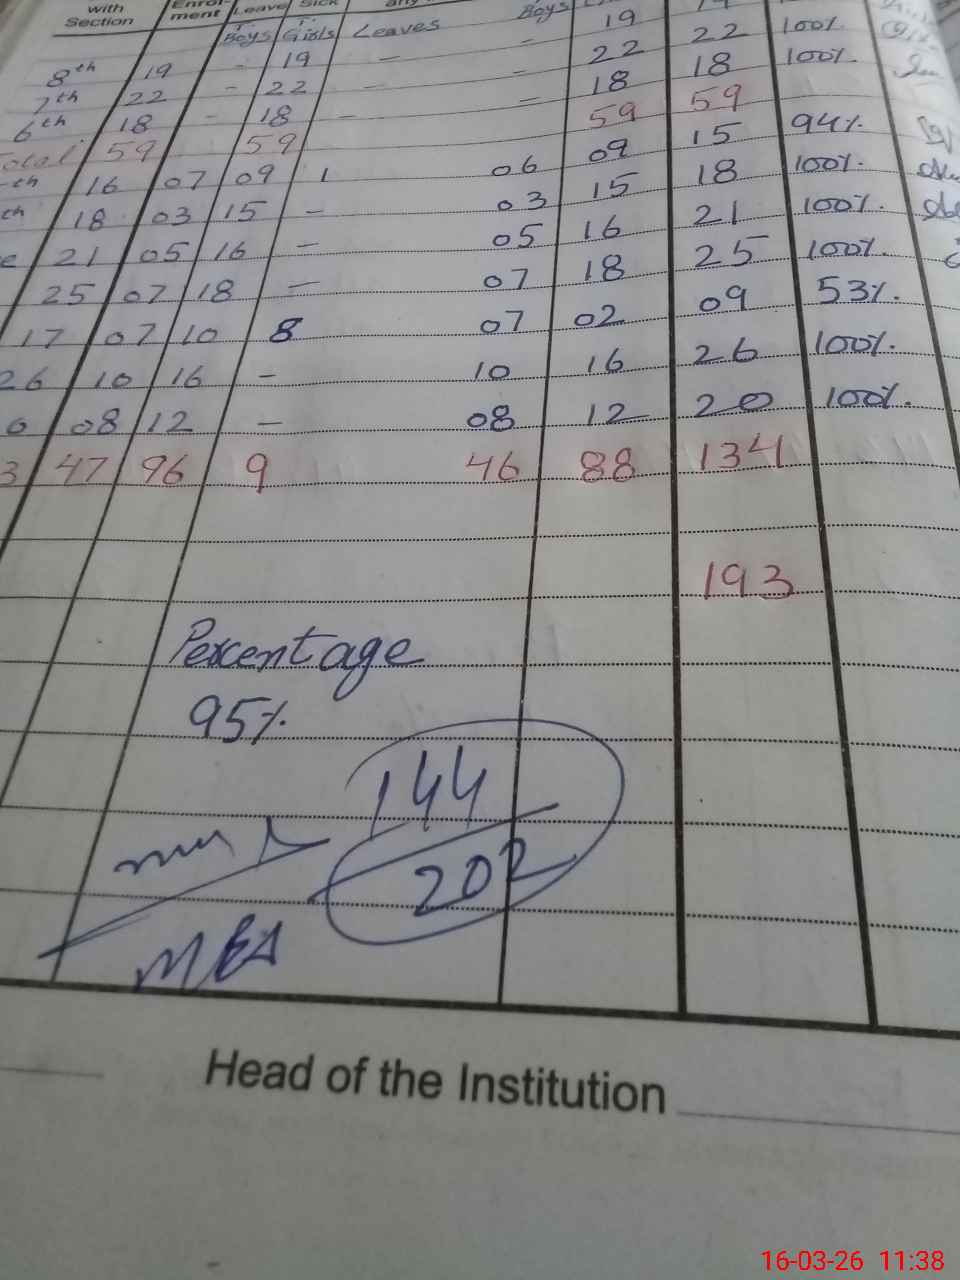 with Section Enrol-ment Leave Sick
T. Boys T. Girls Leaves Boys
8th 19 - 19 - - 19 22 100%
7th 22 - 22 - - 22 18 100%
6th 18 - 18 - - 18
Total 59 59 59 59
th 16 07 09 1 06 09 15 94%
th 18 03 15 - 03 15 18 100%
e 21 05 16 - 05 16 21 100%
25 07 18 - 07 18 25 100%
17 07 10 8 07 02 09 53%
26 10 16 - 10 16 26 100%
0 08 12 - 08 12 20 100%
3 47 96 9 46 88 134
193
Percentage
95%
144
202
MEA
Head of the Institution
16-03-26 11:38